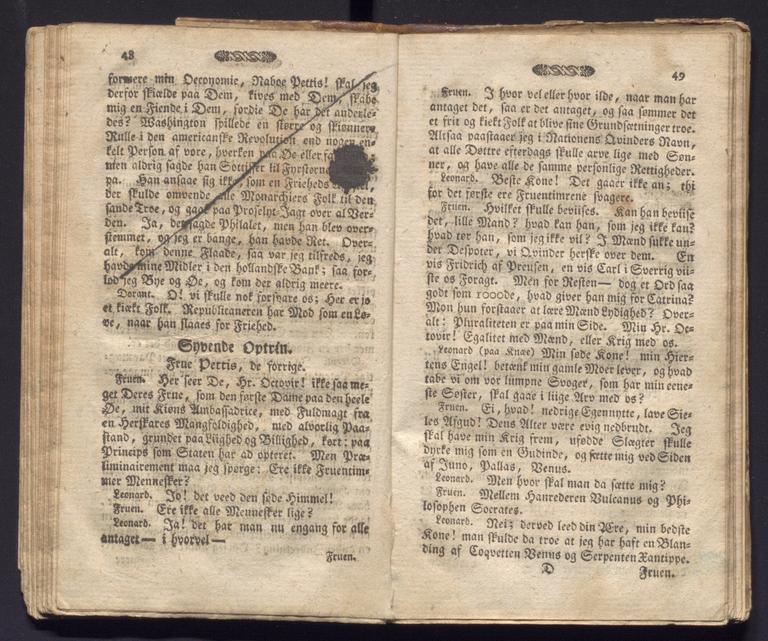 48
formere min Oeconomie, Naboe Pettis! skal jeg
derfor skiælde paa Dem, kives med Dem, skabe
mig en Fiende i Dem, fordie De har det anderle-
des? Washington spillede en større og skiønnere
Rulle i den americanske Revolution end nogen en-
kelt Person af vore, hverken paa Øe eller
men aldrig sagde han Sottiser til Fyrsterne
pa. Han ansaae sig ikke som en Frieheds
der skulde omvende alle Monarchiers Folk til den
sande Troe, og gaae paa Proselyt Jagt over al Ver-
den. Ja, det sagde Philalet, men han blev over-
stemmet, og jeg er bange, han havde Ret. Over-
alt, kom denne Flaade, saa var jeg tilfreds, jeg
havde mine Midler i den hollandske Bank; saa for-
lod jeg Bye og Øe, og kom der aldrig meere.
Dorant. O! vi skulle nok forsvare os; Her er jo
et kiækt Folk. Republicaneren har Mod som en Lø-
ve, naar han slaaes for Friehed.
Syvende Optrin.
Frue Pettris, de forrige.
Fruen. Her seer De, Hr. Octovir! ikke saa me-
get Deres Frue, som den første Dame paa den heele
Øe, mit Kiøns Ambassadrice, med Fuldmagt fra
en Herskares Mangfoldighed, med alvorlig Paa-
stand, grundet paa Liighed og Billighed, kort: paa
Princips som Staten har adopteret. Men Præ-
liminairement maa jeg spørge: Ere ikke Fruentim-
mer Mennesker?
Leonard. Jo! det veed den søde Himmel!
Fruen. Ere ikke alle Mennesker lige?
Leonard. Ja! det har man nu engang for alle
antaget — i hvorvel —
Fruen.
49
Fruen. I hvor vel eller hvor ilde, naar man har
antaget det, saa er det antaget, og saa sømmer det
et frit og kiekt Folk at blive sine Grundsætninger troe.
Altsaa paastaaer jeg i Nationens Qvinders Navn,
at alle Døttre efterdags skulle arve lige med Søn-
ner, og have alle de samme personlige Rettigheder.
Leonard. Beste Kone! Det gaaer ikke an; thi
for det første ere Fruentimrene svagere.
Fruen. Hvilket skulle beviises. Kan han beviise
det, lille Mand? hvad kan han, som jeg ikke kan?
hvad tør han, som jeg ikke vil? I Mænd sukke un-
der Despoter, vi Qvinder herske over dem. En
vis Fridrich af Preusen, en vis Carl i Sverrig vii-
ste os Foragt. Men for Resten — dog et Ord saa
godt som 10000de, hvad giver han mig for Catrina?
Mon hun forstaaer at lære Mænd Lydighed? Over-
alt: Pluraliteten er paa min Side. Min Hr. Oc-
tovir! Egalitet med Mænd, eller Krig med os.
Leonard (paa Knæe) Min søde Kone! min Hier-
tens Engel! betænk min gamle Moer lever, og hvad
tabe vi om vor lumpne Svoger, som har min eene-
ste Søster, skal gaae i liige Arv med os?
Fruen. Ei, hvad! nedrige Egennytte, lave Sie-
les Afgud! Deus Alter være evig nedbrudt. Jeg
skal have min Krig frem, ufødde Slægter skulle
dyrke mig som en Gudinde, og sætte mig ved Siden
af Juno, Pallas, Venus.
Leonard. Men hvor skal man da sætte mig?
Fruen. Mellem Hanrederen Vulcanus og Phi-
losophen Socrates.
Leonard. Nei; derved leed din Ære, min bedste
Kone! man skulde da troe at jeg har haft en Blan-
ding af Coqvetten Venus og Serpenten Xantippe.
D
Fruen.